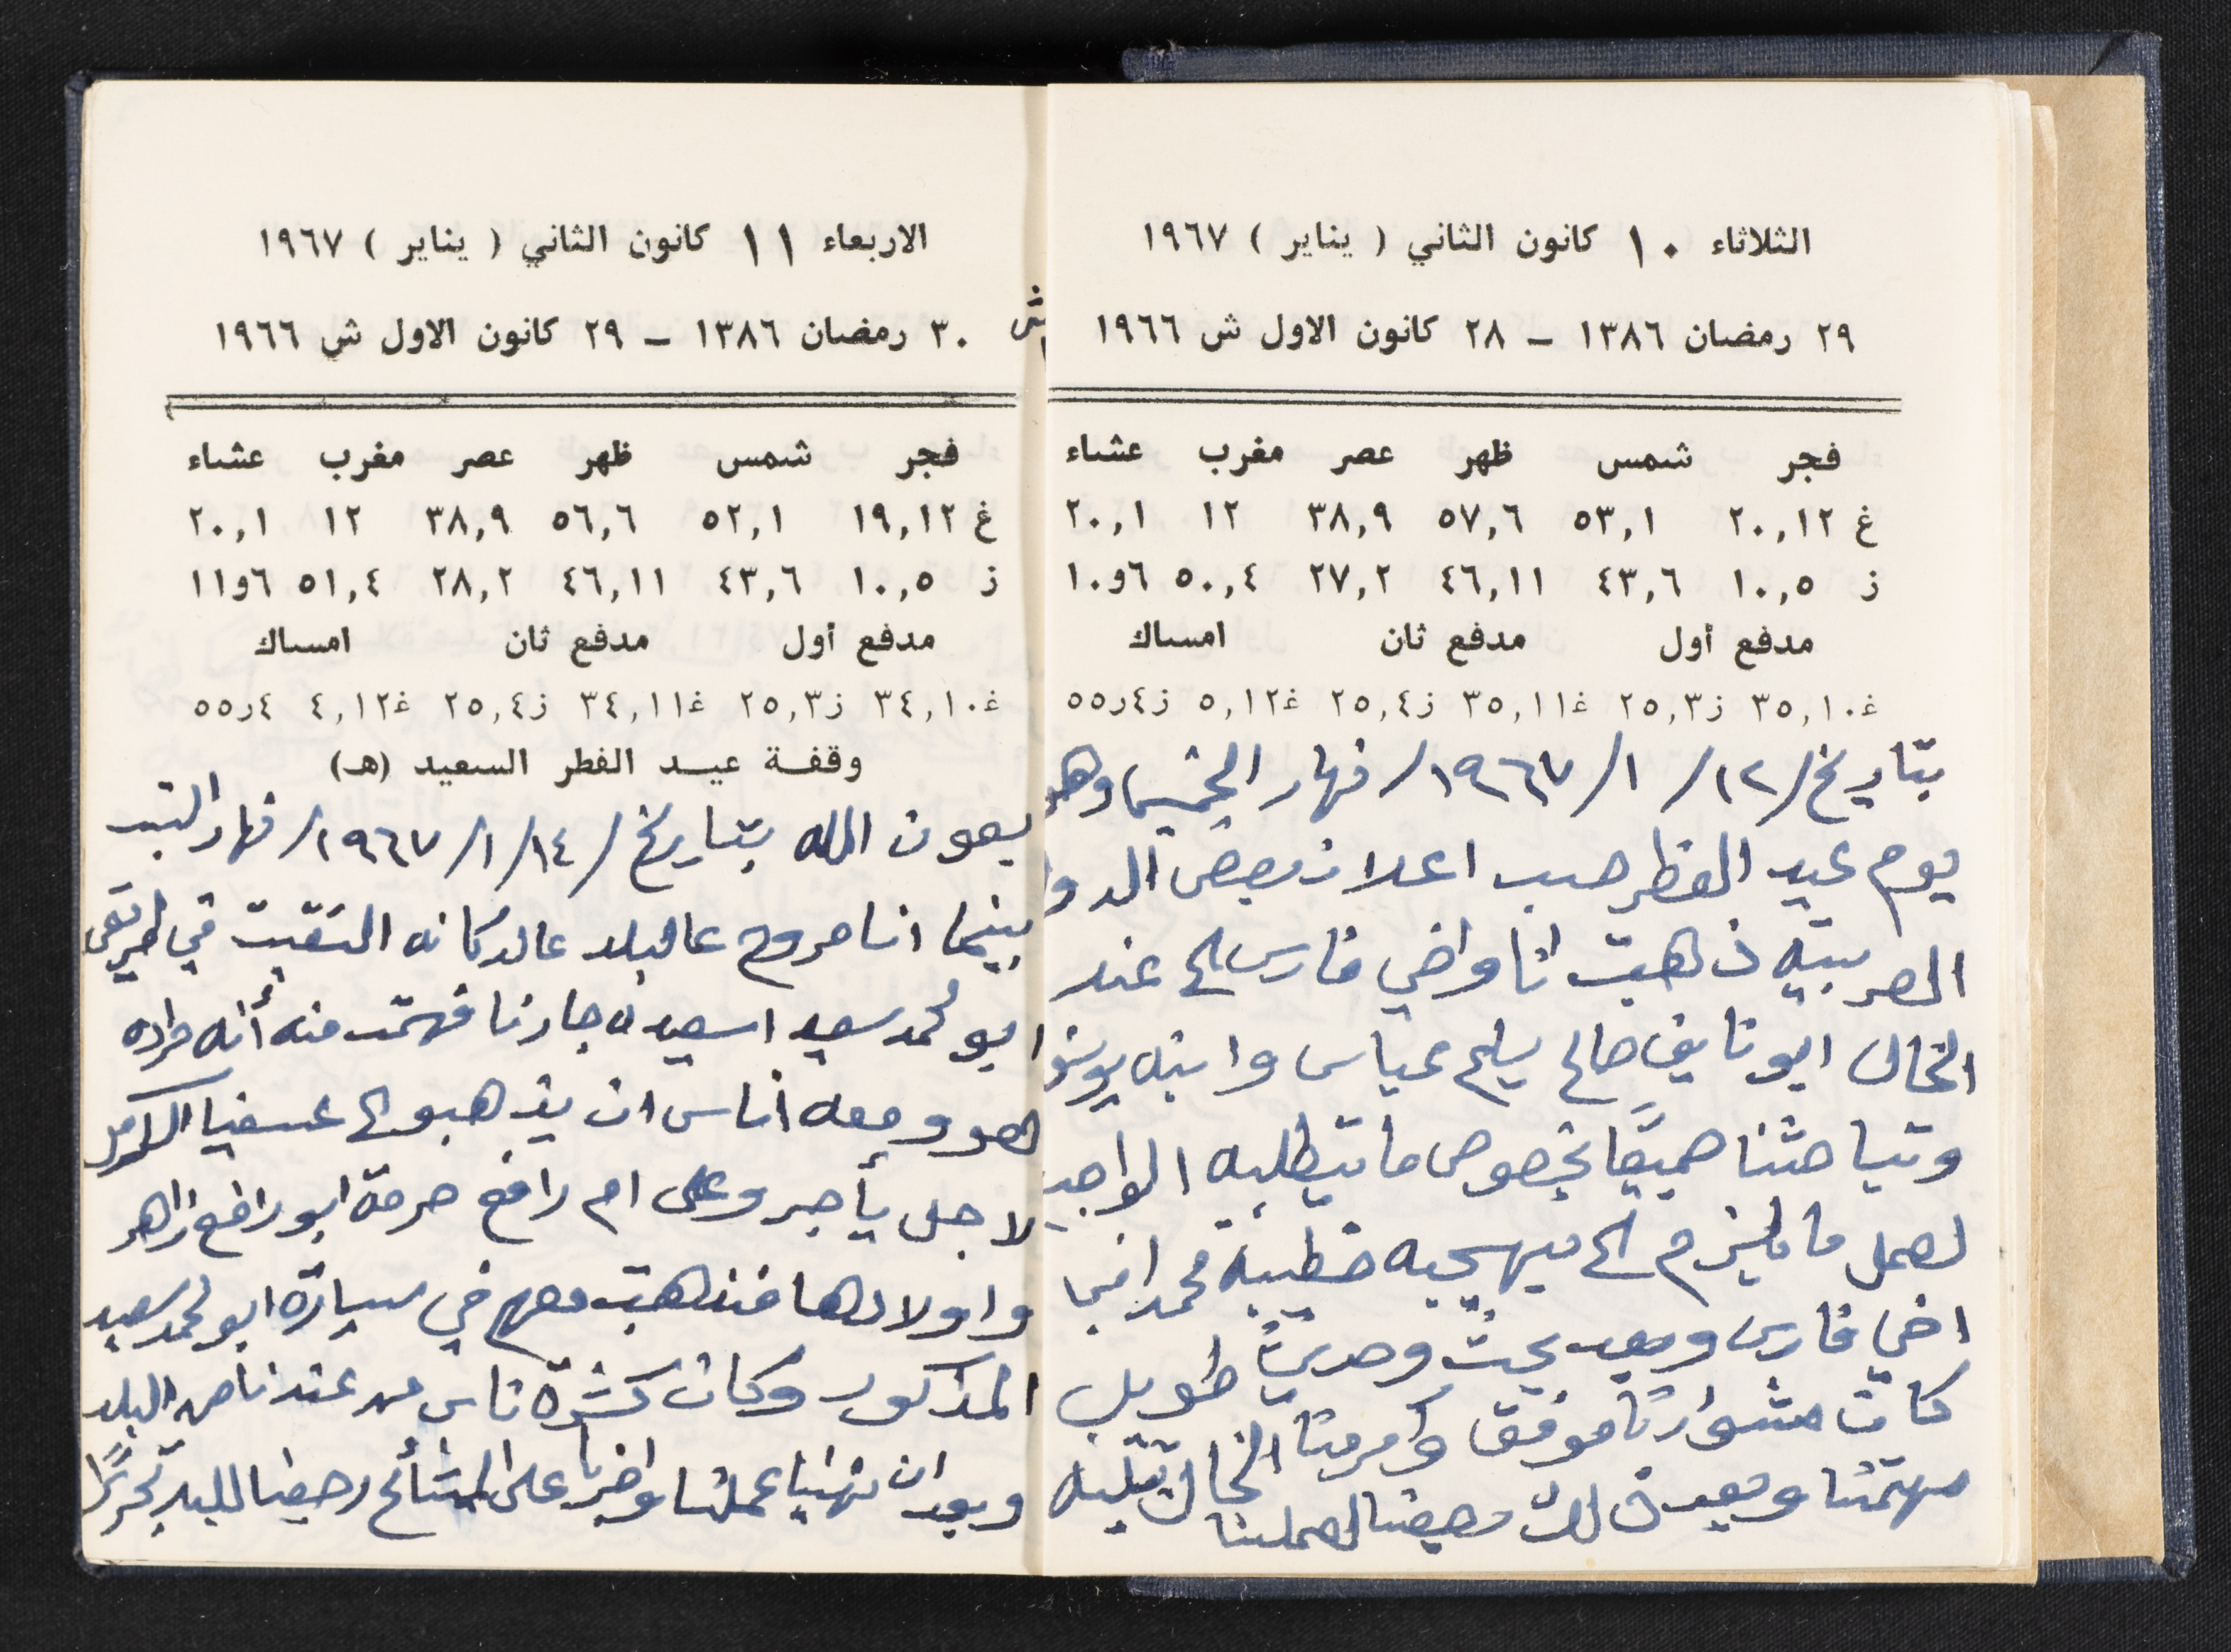 الثلاثاء ١٠ كانون الثاني ( يناير ) ١٩٦٧
٢٩ رمضان ١٣٨٦ - ٢٨ كانون الاول ش ١٩٦٦
فجر شمس ظهر عصر مغرب عشاء
غ ٢٠,١٢ ٥٣,١ ٥٧,٦ ٣٨,٩ ١٢ ٢٠,١
ز ١٠,٥ ٤٣,٦ ٤٦,١١ ٢٧,٢ ٥٠,٤ ٦و١٠
مدفع أول مدفع ثان امساك
غ٣٥,١٠ ز٢٥,٣ غ٣٥,١١ ز٢٥,٤ غ٥,١٢ ز٤ر٥٥
بتاريخ /١٢/ ١/ ١٩٦٧/ نهار الخميس وهو
يوم عيد الفطر حسب اعلان بعض الدول
العربيه ذهبت انا واخي فارس الى عند
الخال ابو نايف صالح سليم عباس وابنه
وتباحثنا بخصوص ما يتطلبه الواجب
لعمل ما يلزم الى خطيبة محمد ابن
اخي فارس وبعد بحث وحديث طويل
كان مشوارنا موفق الخال
مهمتنا وبعد ذلك رجعنا لعملنا
الاربعاء ١١ كانون الثاني ( يناير ) ١٩٦٧
٣٠ رمضان ١٣٨٦ - ٢٩ كانون الاول ش ١٩٦٦
فجر شمس ظهر عصر مغرب عشاء
غ ١٩,١٢ ٥٢,١ ٥٦,٦ ٣٨,٩ ١٢ ٢٠,١
ز ١٠,٥ ٤٣,٦ ٤٦,١١ ٢٨,٢ ٥١,٤ ٦و١١
مدفع أول مدفع ثان امساك
غ٣٤,١٠ ز٢٥,٣ غ٣٤,١١ ز٢٥,٤ غ٤,١٢ ٤ر٥٥
وقفة عيد الفطر السعيد (هـ)
بعون الله بتاريخ /١٤/ ١/ ١٩٦٧/ نهار السبت
بينما انا مروح عالبلد عالدكانه التقيت في طريقي
ابو محمد سعيد جارنا فهمت منه أنه مراده
هو ومعه أناس ان يذهبو الى عسفيا الكرمل
لاجل يأجرو على ام رافع حرمة ابو رافع زاهر
واولادها فذهبت معهم في سيارة ابو محمد سعيد
المذكور وكان كثرة ناس من عندنا من البلد
وبعد ان نهينا عملنا على المشائخ رجعنا للبلد